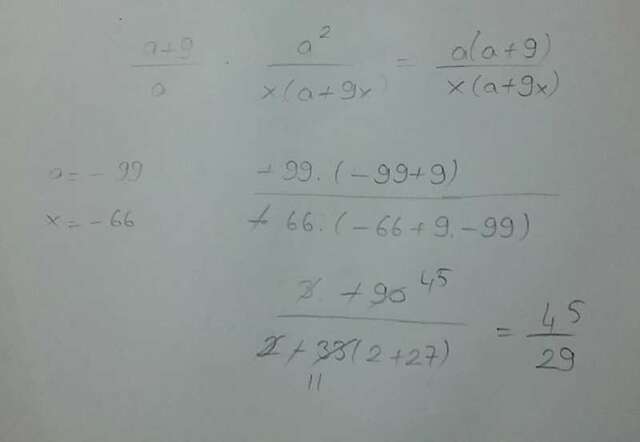 (a+9)/a · a²/(x(a+9x)) = a(a+9)/(x(a+9x))
a = - 99
x = - 66
+ 99 · (- 99 + 9) / + 66 · (- 66 + 9 · - 99)
3 · + 90 45 / 2 + 33 (2 + 27) = 45/29
11